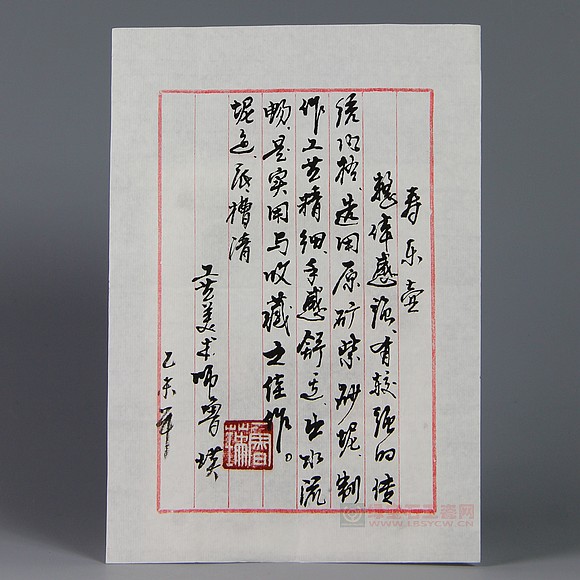 寿乐壶
整体感强、有较强的传
统风格、选用原矿紫砂泥、制
作工艺精细、手感舒适、出水流
畅、是实用与收藏之佳作。
泥色：底槽清
工艺美术师鲁
乙未年
WWW.LBSYCW.CN